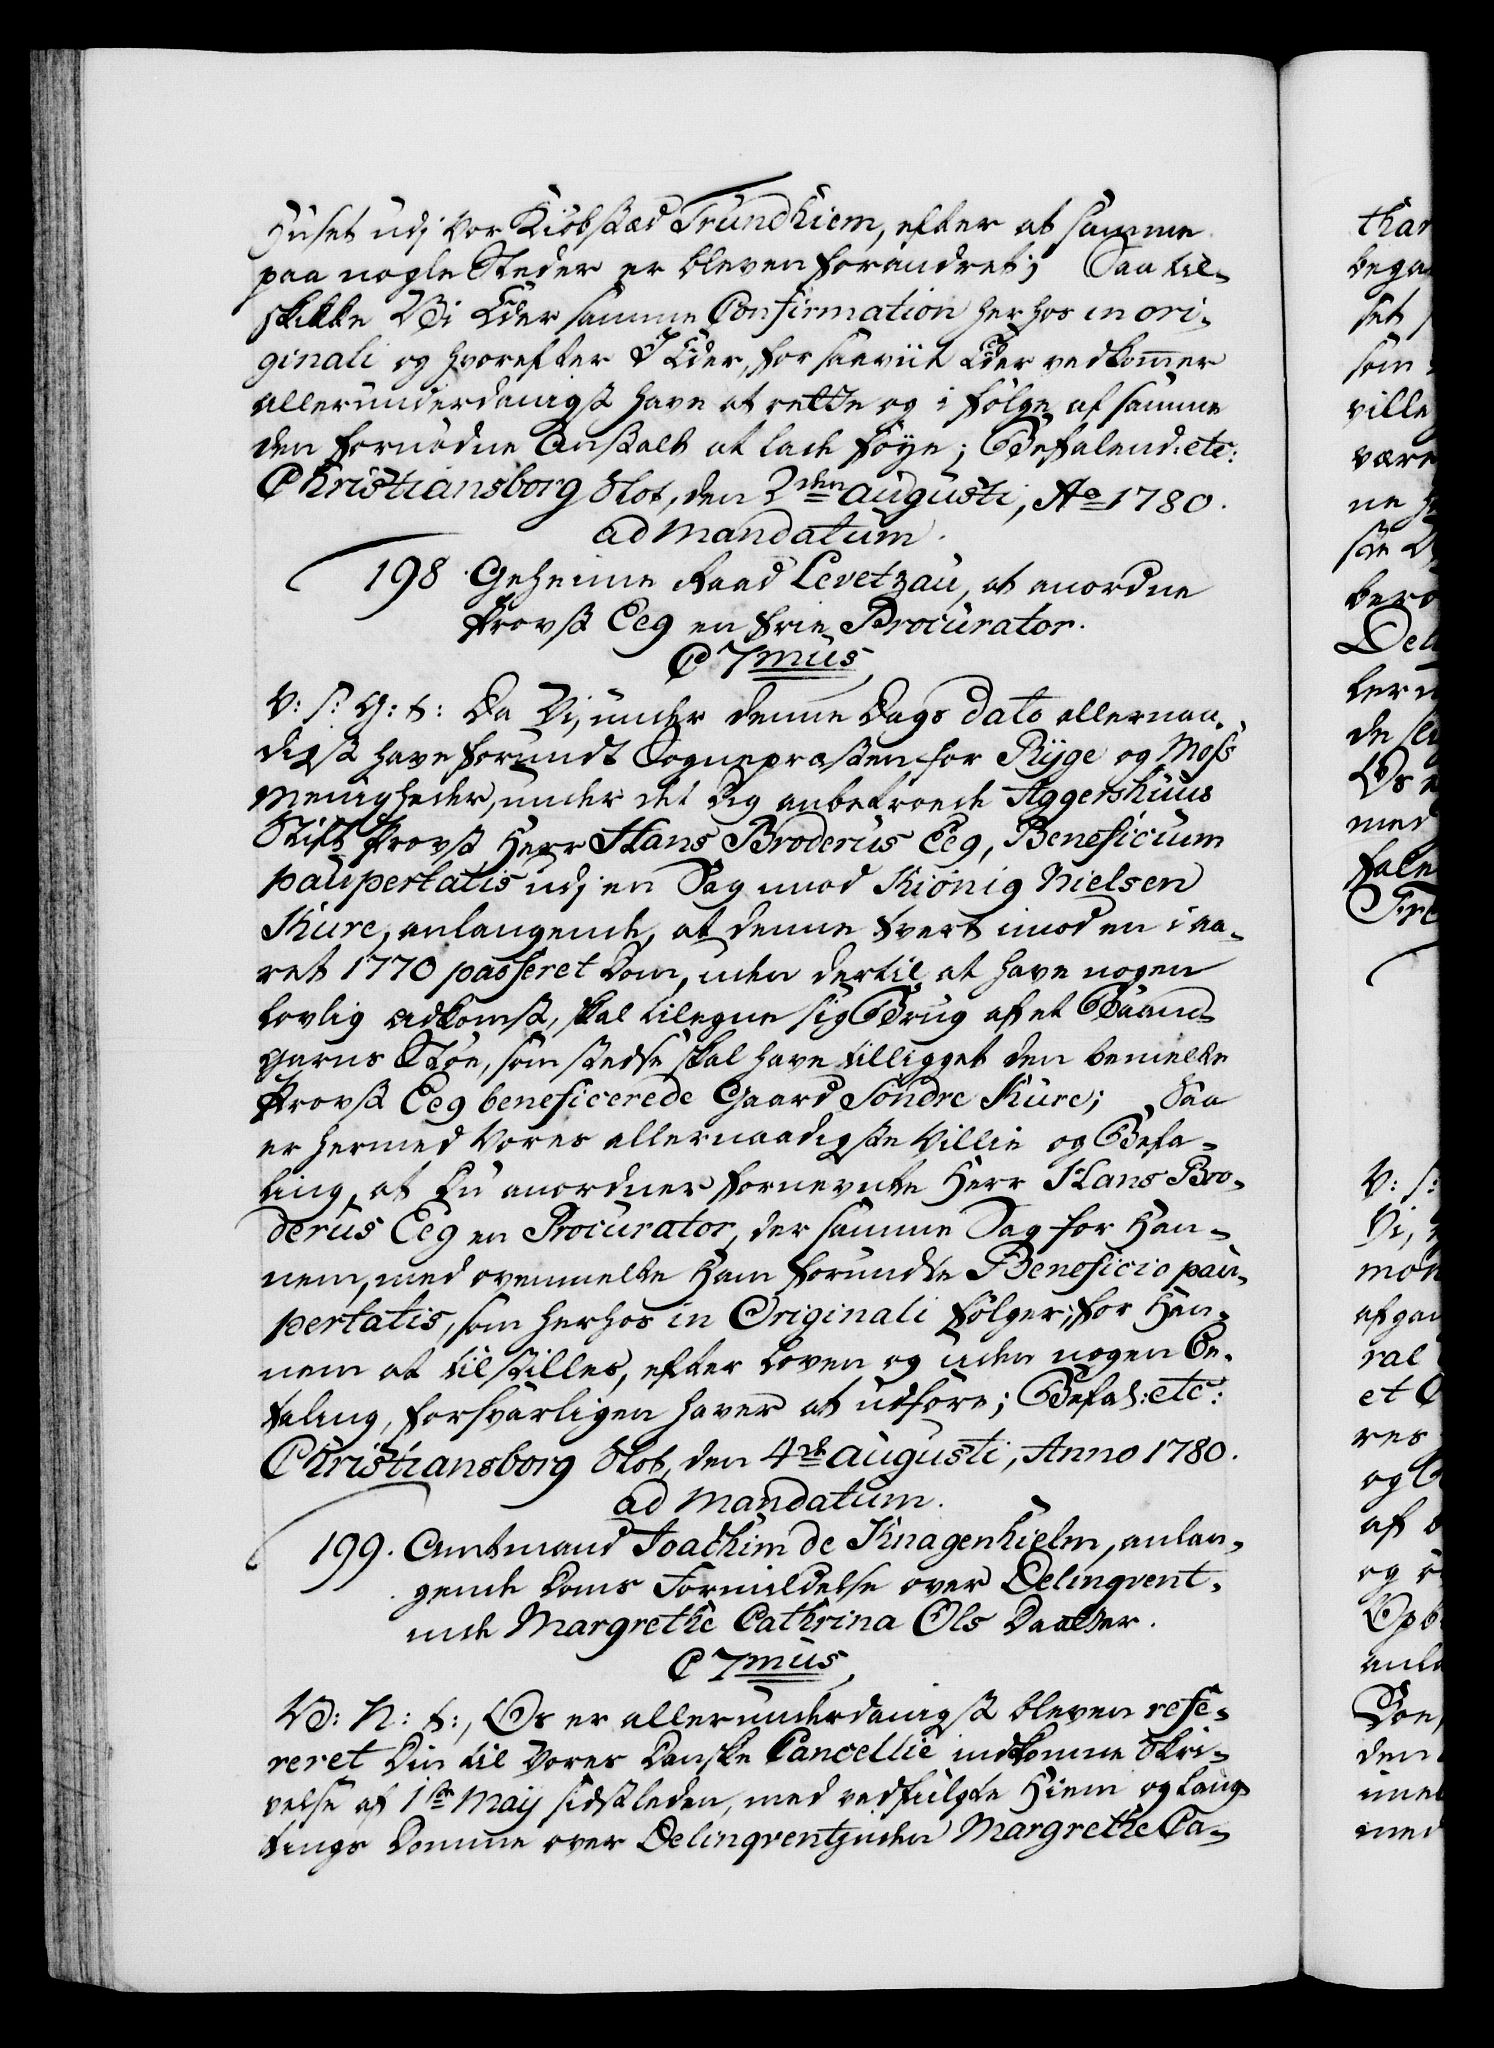 Huset udj vor Kiöbstæd Trundhiem, efter at samme
paa nogle Steder er bleven forandret; Saa til-
skikke Vi Eder samme Confirmation herhos in ori-
ginali og hvorefter I Eder, for saaviit Eder vedkommer
allerunderdanigst have at rette og i følge af samme
den fornødne Anstalt at lade føye; Befalend: etc:
Christiansborg Slot, den 2den augusti, Ao 1780.
ad mandatum.
198. Geheime Raad Levetzau, at anordne
Provst Eeg en frie Procurator.
C 7mus
V: S: G: t: Da Vi, under denne Dags dato allernaa-
digst have forundt Sognepræsten for Ryge og Moss
Menigheder, under det dig anbetroede Aggershuus
Stift Provst Herr Hans Broderus Eeg, Beneficium
paupertatis udj en Sag imod Kiönig Nielsen
Kure, anlangende, at denne tvert imod en i aa-
ret 1770 passeret Dom, uden dertil at have nogen
lovlig adkomst, skal tilegne sig Brug af et Baand-
garns Støe, som stedse skal have tilligget den bemelte
Provst Eeg beneficerede Gaard Söndre Kure; Saa
er hermed Vores allernaadigste Villie og Befa-
ling, at Du anordner fornevnte Herr Hans Bro-
derus Eeg en Procurator, der samme Sag for Han-
nem, med ovenmelte Ham forundte Beneficio pau-
pertatis, som herhos in Originali følger, for Han-
nem at tilstilles, efter Loven og uden nogen Be-
taling, forsvarligen haver at udføre; Befal: etc:
Christiansborg Slot, den 4de augusti, Anno 1780.
ad mandatum.
199. Amtmand Joachim de Knagenhielm, anlan-
gende Doms Formildelse over Delinqvent-
inde Margrethe Cathrina Ols Daatter.
C 7mus
V: N: t:, Os er allerunderdanigst bleven refe-
reret Din til Vores Danske Cancellie indkomne Skri-
velse af 1ste May sidstleden, med vedfulgte Hiem og Laug-
tings Domme over Delinqventinden Margrethe Ca-